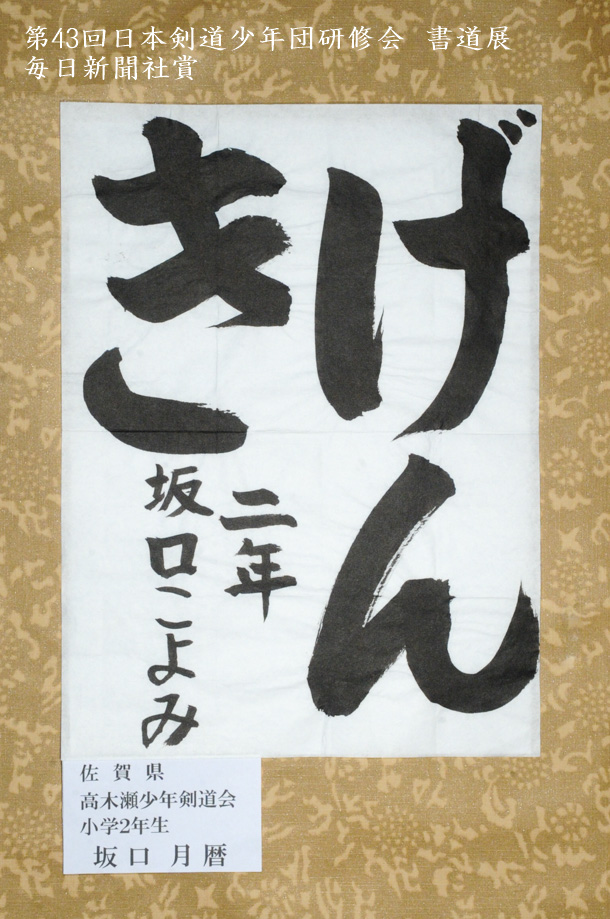 第43回日本剣道少年団研修会　書道展
毎日新聞社賞
げん
き
二年
坂口こよみ
佐賀県
高木瀬少年剣道会
小学2年生
坂口　月暦